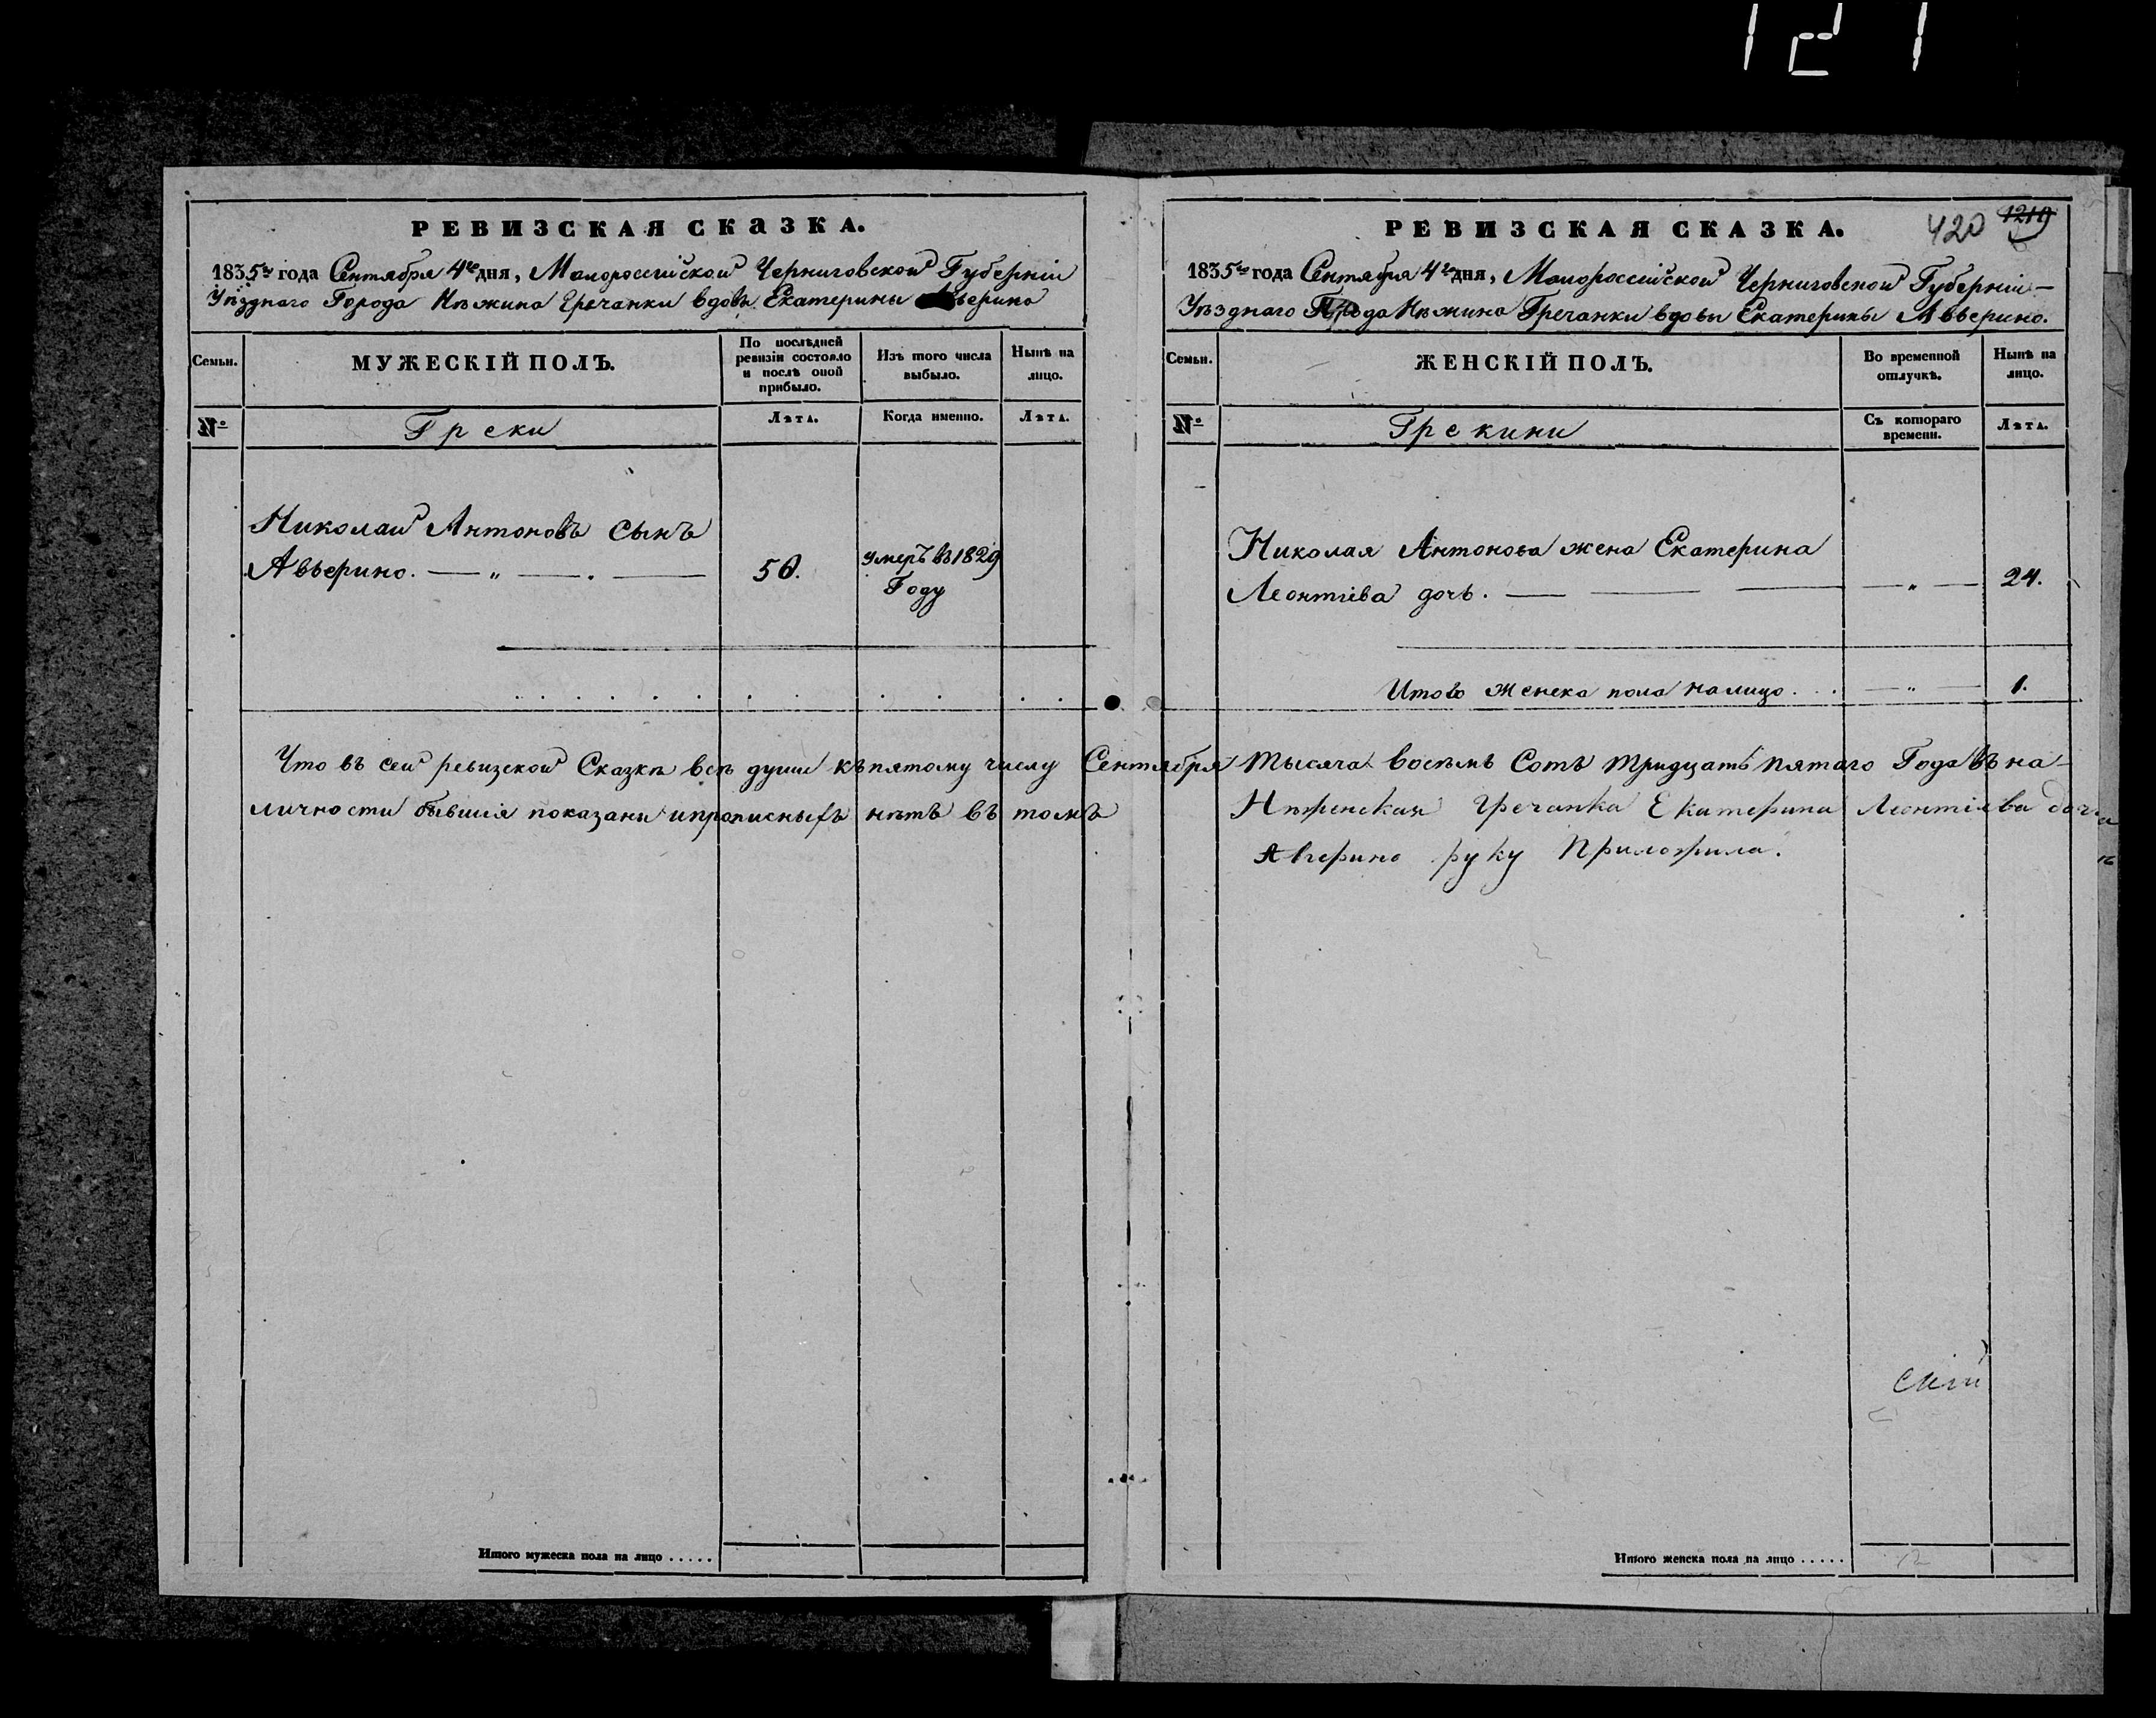 121
РЕВИЗСКАЯ СКАЗКА.
1835го года Сентября 4го дня, Малороссійской Черниговской Губерніи
Уѣзднаго Города Нѣжина Гречанки вдовы Екатерины верино
Семьи.
МУЖЕСКІЙ ПОЛЪ.
По послѣдней ревизіи состояло и послѣ оной прибыло.
Изъ того числа выбыло.
Нынѣ на лицо.
№
Греки
Лѣта.
Когда именно.
Лѣта.
Николай Антоновъ сынъ
Авверино. — „ — . —
56.
умеръ въ 1829
Году
Что въ сей ревизской Сказкѣ всѣ души къ пятому числу Сентября тысяча восемь Сотъ тридцать пятаго Года въ на-
личности бывшія показани и прописныхъ нѣтъ въ томъ
Нѣженская Гречанка Екатерина Леонтіева дочка
Аверино руку Приложила.
Итого мужеска пола на лицо . . . . .
РЕВИЗСКАЯ СКАЗКА.
420
1219
1835го года Сентября 4го дня, Малороссійской Черниговской Губерніи —
Уѣзднаго Города Нѣжина Гречанки вдовы Екатерины Авверино.
Семьи.
ЖЕНСКІЙ ПОЛЪ.
Во временной отлучкѣ.
Нынѣ на лицо.
№
Грекини
Съ котораго времени.
Лѣта.
Николая Антонова жена Екатерина
Леонтіева дочь. — — — — „ — 24.
Итого женска пола налицо . . . — „ — 1.
Итого женска пола на лицо . . . . .